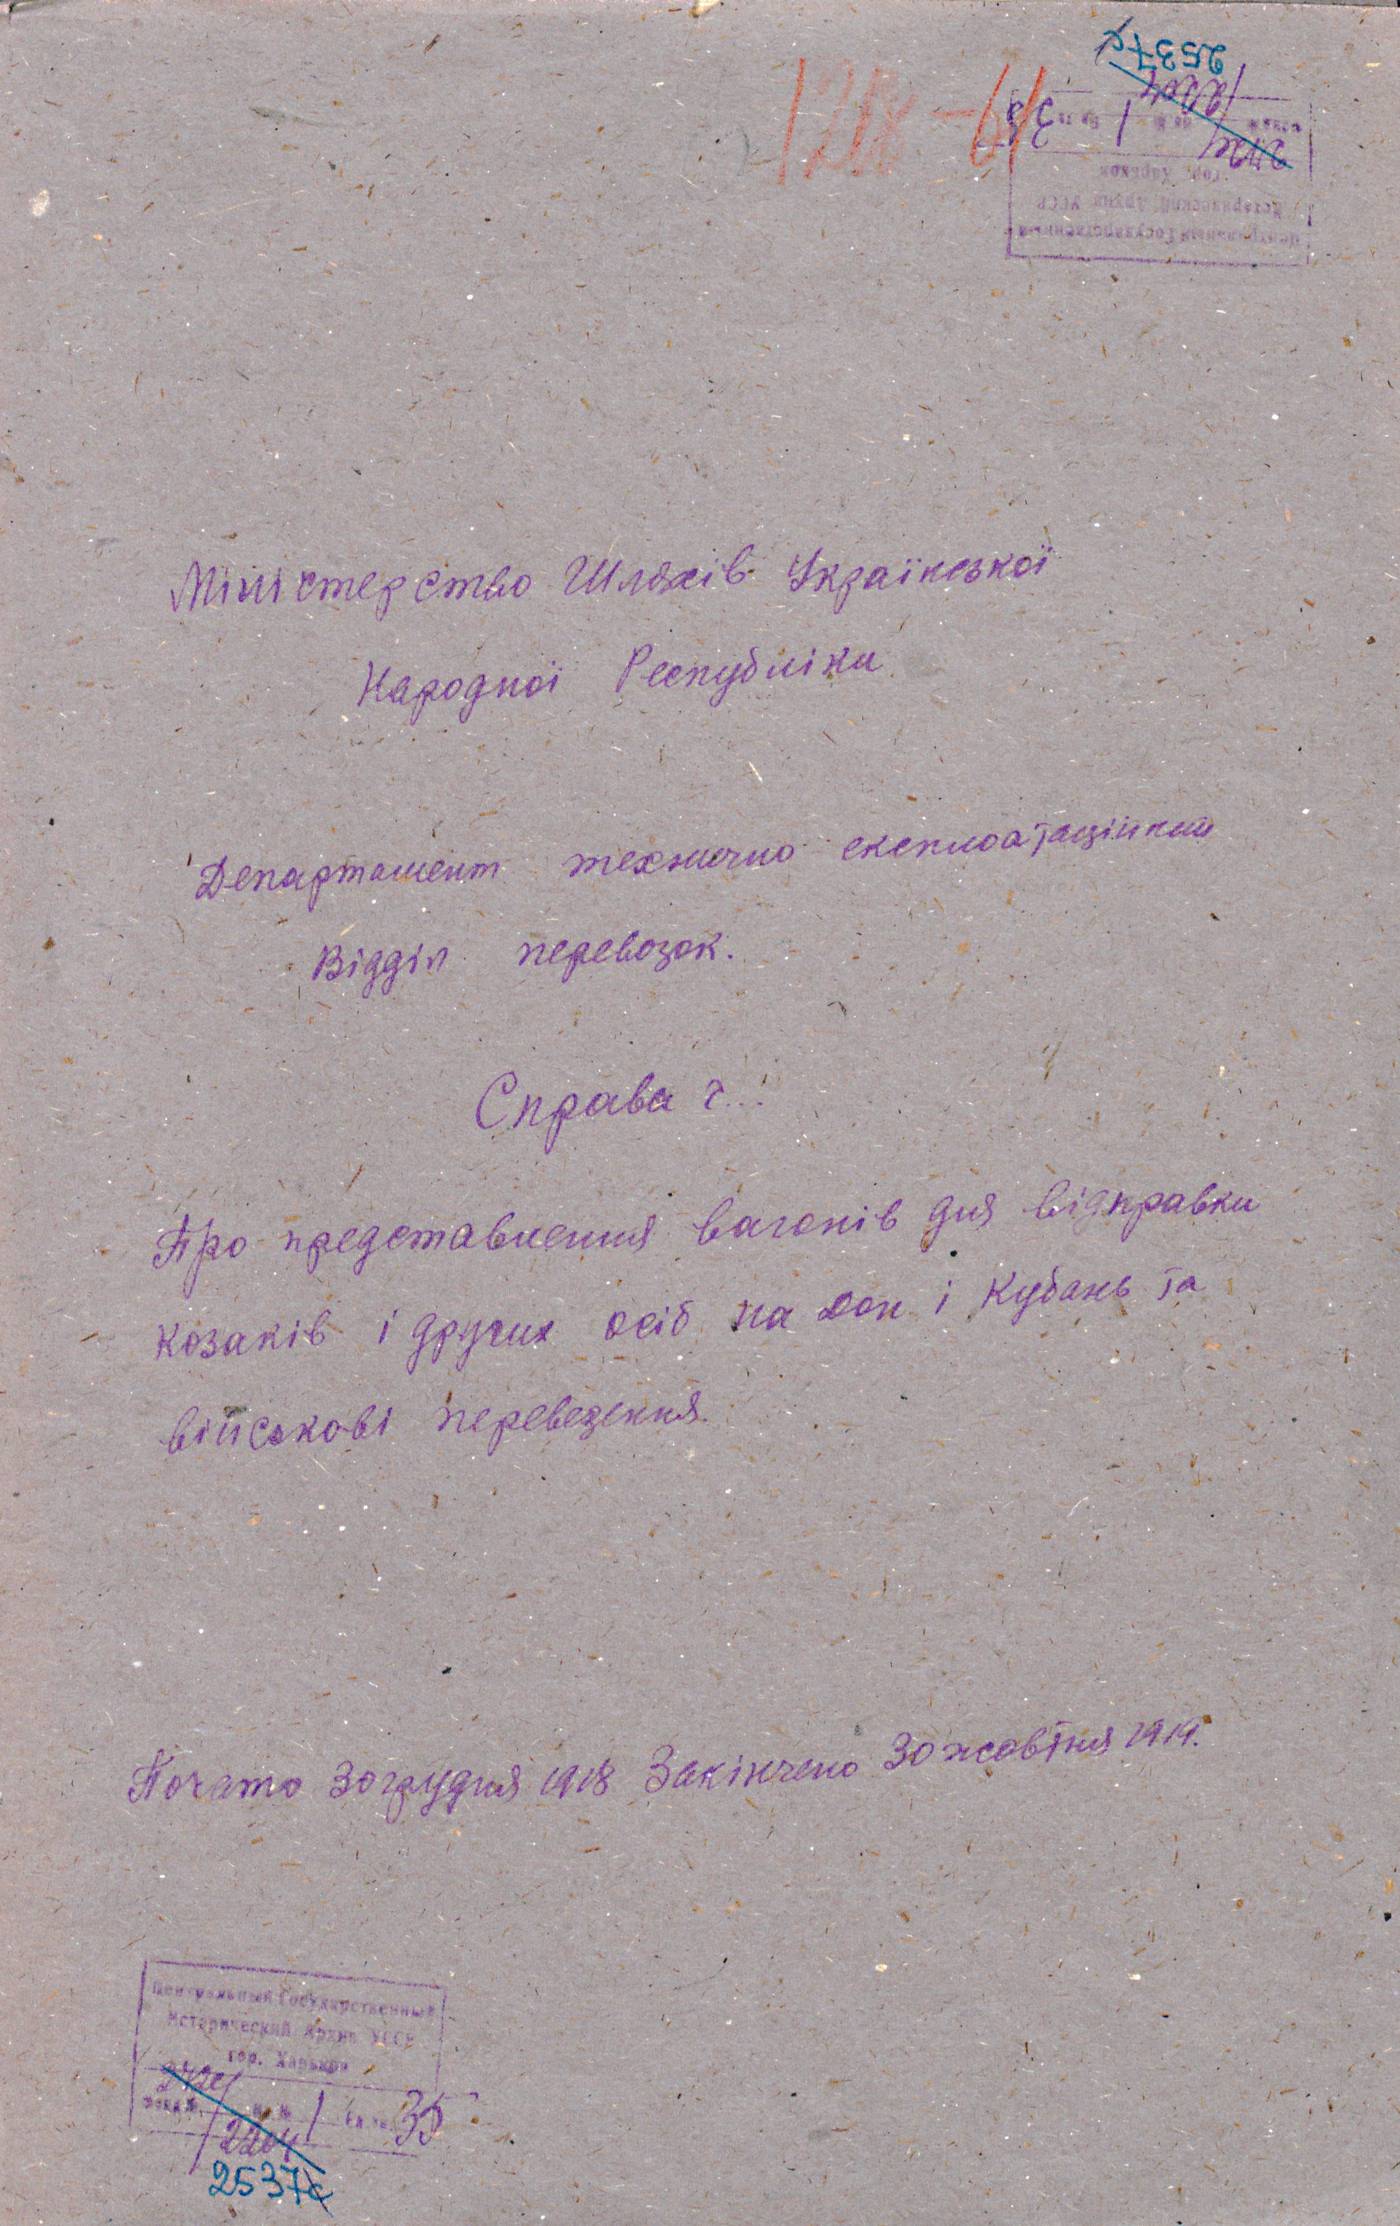 1218-61
2537
35
гор. Харьков
Исторический Архив УССР
Центральный Государственный
Міністерство Шляхів Української
Народної Республіки
Департамент технично експлоатаційний
Відділ перевозок.
Справа ч...
Про представлення вагонів для відправки
козаків і других осіб на Дон і Кубань та
військові перевезення.
Почато 30 грудня 1918 Закінчено 30 жовтня 1919.
Центральный Государственный
Исторический Архив УССР
гор. Харьков
фонд № оп. № 1 ед. хр. 35
2204
2537